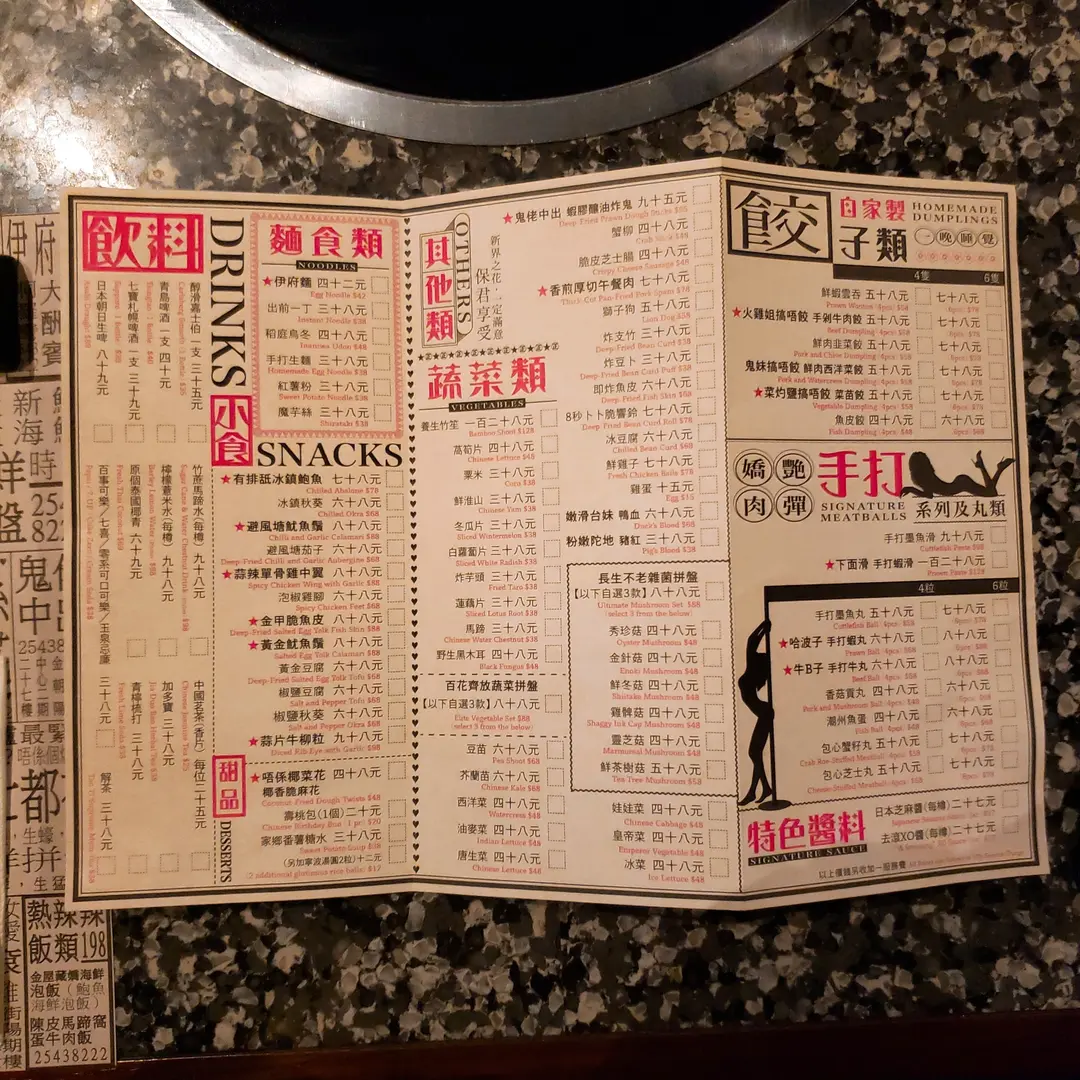 飲料
DRINKS
醇滑嘉士伯一支 三十五元
青島啤酒一支 四十元
七寶札幌啤酒一支 三十九元
日本朝日生啤 八十九元
竹蔗馬蹄水(每樽) 九十八元
檸檬薏米水(每樽) 九十八元
原個泰國椰青 六十九元
百事可樂/七喜/零系可口可樂/玉泉忌廉 三十八元
中國名茶(香片)每位二十五元
加多寶 三十八元
青檸梳打 三十八元
解茶 三十八元
麵食類
NOODLES
★伊府麵 四十二元
Egg Noodle $42
出前一丁 三十八元
Instant Noodle $38
稻庭烏冬 四十八元
Inaniwa Udon $48
手打生麵 三十八元
Homemade Egg Noodle $38
紅薯粉 三十八元
Sweet Potato Noodle $38
魔芋絲 三十八元
Shirataki $38
小食
SNACKS
★有排舐冰鎮鮑魚 七十八元
Chilled Abalone $78
冰鎮秋葵 六十八元
Chilled Okra $68
★避風塘魷魚鬚 八十八元
Chilli and Garlic Calamari $88
避風塘茄子 六十八元
Deep-Fried Chilli and Garlic Aubergine $68
★蒜辣單骨雞中翼 八十八元
Spicy Chicken Wing with Garlic $88
泡椒雞腳 六十八元
Spicy Chicken Feet $68
★金甲脆魚皮 八十八元
Deep-Fried Salted Egg Yolk Fish Skin $88
★黃金魷魚鬚 八十八元
Salted Egg Yolk Calamari $88
黃金豆腐 六十八元
Deep-Fried Salted Egg Yolk Tofu $68
椒鹽豆腐 六十八元
Salt and Pepper Tofu $68
椒鹽秋葵 六十八元
Salt and Pepper Okra $68
★蒜片牛柳粒 九十八元
Diced Rib Eye with Garlic $98
甜品
DESSERTS
★唔係椰菜花 四十八元
椰香脆麻花
Coconut Fried Dough Twists $48
壽桃包(1個)二十元
Chinese Birthday Bun 1 pc: $20
家鄉番薯糖水 三十八元
Sweet Potato Soup $38
(另加寧波湯圓2粒)十二元
(2 additional glutinous rice balls) $12
其他類
OTHERS
新界之花一定滿意
保君享受
★鬼佬中出 蝦膠釀油炸鬼 九十五元
Deep-Fried Prawn Dough Sticks $95
蟹柳 四十八元
Crab Stick $48
脆皮芝士腸 四十八元
Crispy Cheese Sausage $48
★香煎厚切午餐肉 七十八元
Thick Cut Pan-Fried Pork Spam $78
獅子狗 五十八元
Lion Dog $58
炸支竹 三十八元
Deep-Fried Bean Curd $38
炸豆卜 三十八元
Deep-Fried Bean Curd Puff $38
即炸魚皮 六十八元
Deep-Fried Fish Skin $68
8秒卜卜脆響鈴 七十八元
Deep-Fried Bean Curd Roll $78
冰豆腐 六十八元
Chilled Bean Curd $68
鮮雞子 七十八元
Fresh Chicken Balls $78
雞蛋 十五元
Egg $15
嫩滑台妹 鴨血 六十八元
Duck's Blood $68
粉嫩陀地 豬紅 三十八元
Pig's Blood $38
蔬菜類
VEGETABLES
養生竹笙 一百二十八元
Bamboo Shoot $128
萵筍片 四十八元
Chinese Lettuce $48
粟米 三十八元
Corn $38
鮮淮山 三十八元
Chinese Yam $38
冬瓜片 三十八元
Sliced Wintermelon $38
白蘿蔔片 三十八元
Sliced White Radish $38
炸芋頭 三十八元
Fried Taro $38
蓮藕片 三十八元
Sliced Lotus Root $38
馬蹄 三十八元
Chinese Water Chestnut $38
野生黑木耳 四十八元
Black Fungus $48
百花齊放蔬菜拼盤
【以下自選3款】八十八元
Elite Vegetable Set $88
(select 3 from the below)
豆苗 六十八元
Pea Shoot $68
芥蘭苗 六十八元
Chinese Kale $68
西洋菜 四十八元
Watercress $48
油麥菜 四十八元
Indian Lettuce $48
唐生菜 四十八元
Chinese Lettuce $48
長生不老雜菌拼盤
【以下自選3款】八十八元
Ultimate Mushroom Set $88
(select 3 from the below)
秀珍菇 四十八元
Oyster Mushroom $48
金針菇 四十八元
Enoki Mushroom $48
鮮冬菇 四十八元
Shiitake Mushroom $48
雞髀菇 四十八元
Shaggy Ink Cap Mushroom $48
靈芝菇 四十八元
Marmoreal Mushroom $48
鮮茶樹菇 五十八元
Tea Tree Mushroom $58
娃娃菜 四十八元
Chinese Cabbage $48
皇帝菜 四十八元
Emperor Vegetable $48
冰菜 四十八元
Ice Lettuce $48
餃子類
自家製
HOMEMADE
DUMPLINGS
一晚睡覺
4隻 6隻
鮮蝦雲吞 五十八元 七十八元
★火雞姐搞唔餃 手剁牛肉餃 五十八元 七十八元
鮮肉韭菜餃 五十八元 七十八元
鬼妹搞唔餃 鮮肉西洋菜餃 五十八元 七十八元
★菜灼鹽搞唔餃 菜苗餃 五十八元 七十八元
魚皮餃 四十八元 六十八元
嬌艷肉彈
手打
SIGNATURE
MEATBALLS
系列及丸類
手打墨魚滑 九十八元
Cuttlefish Paste $98
★下面滑 手打蝦滑 一百二十八元
Prawn Paste $128
4粒 6粒
手打墨魚丸 五十八元 七十八元
★哈波子 手打蝦丸 六十八元 八十八元
★牛B子 手打牛丸 六十八元 八十八元
香菇貢丸 四十八元 六十八元
潮州魚蛋 四十八元 六十八元
包心蟹籽丸 五十八元 七十八元
包心芝士丸 五十八元 七十八元
特色醬料
SIGNATURE SAUCE
日本芝麻醬(每樽)二十七元
去滾XO醬(每樽)二十七元
以上價錢另收加一服務費
府大酬賓
新海
時
鬼
中
2543
最
都
熱辣辣
飯類198
金屋藏嬌海鮮
泡飯(鮑魚
海鮮泡飯)
陳皮馬蹄窩
蛋牛肉飯
25438222